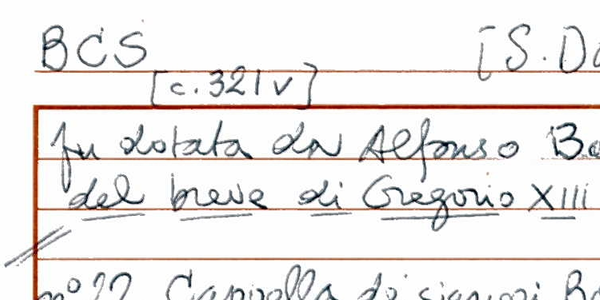 BCS [S. Do
[c. 321v]
fu dotata da Alfonso Ba
del breve di Gregorio XIII
n° 22 Cappella di signori